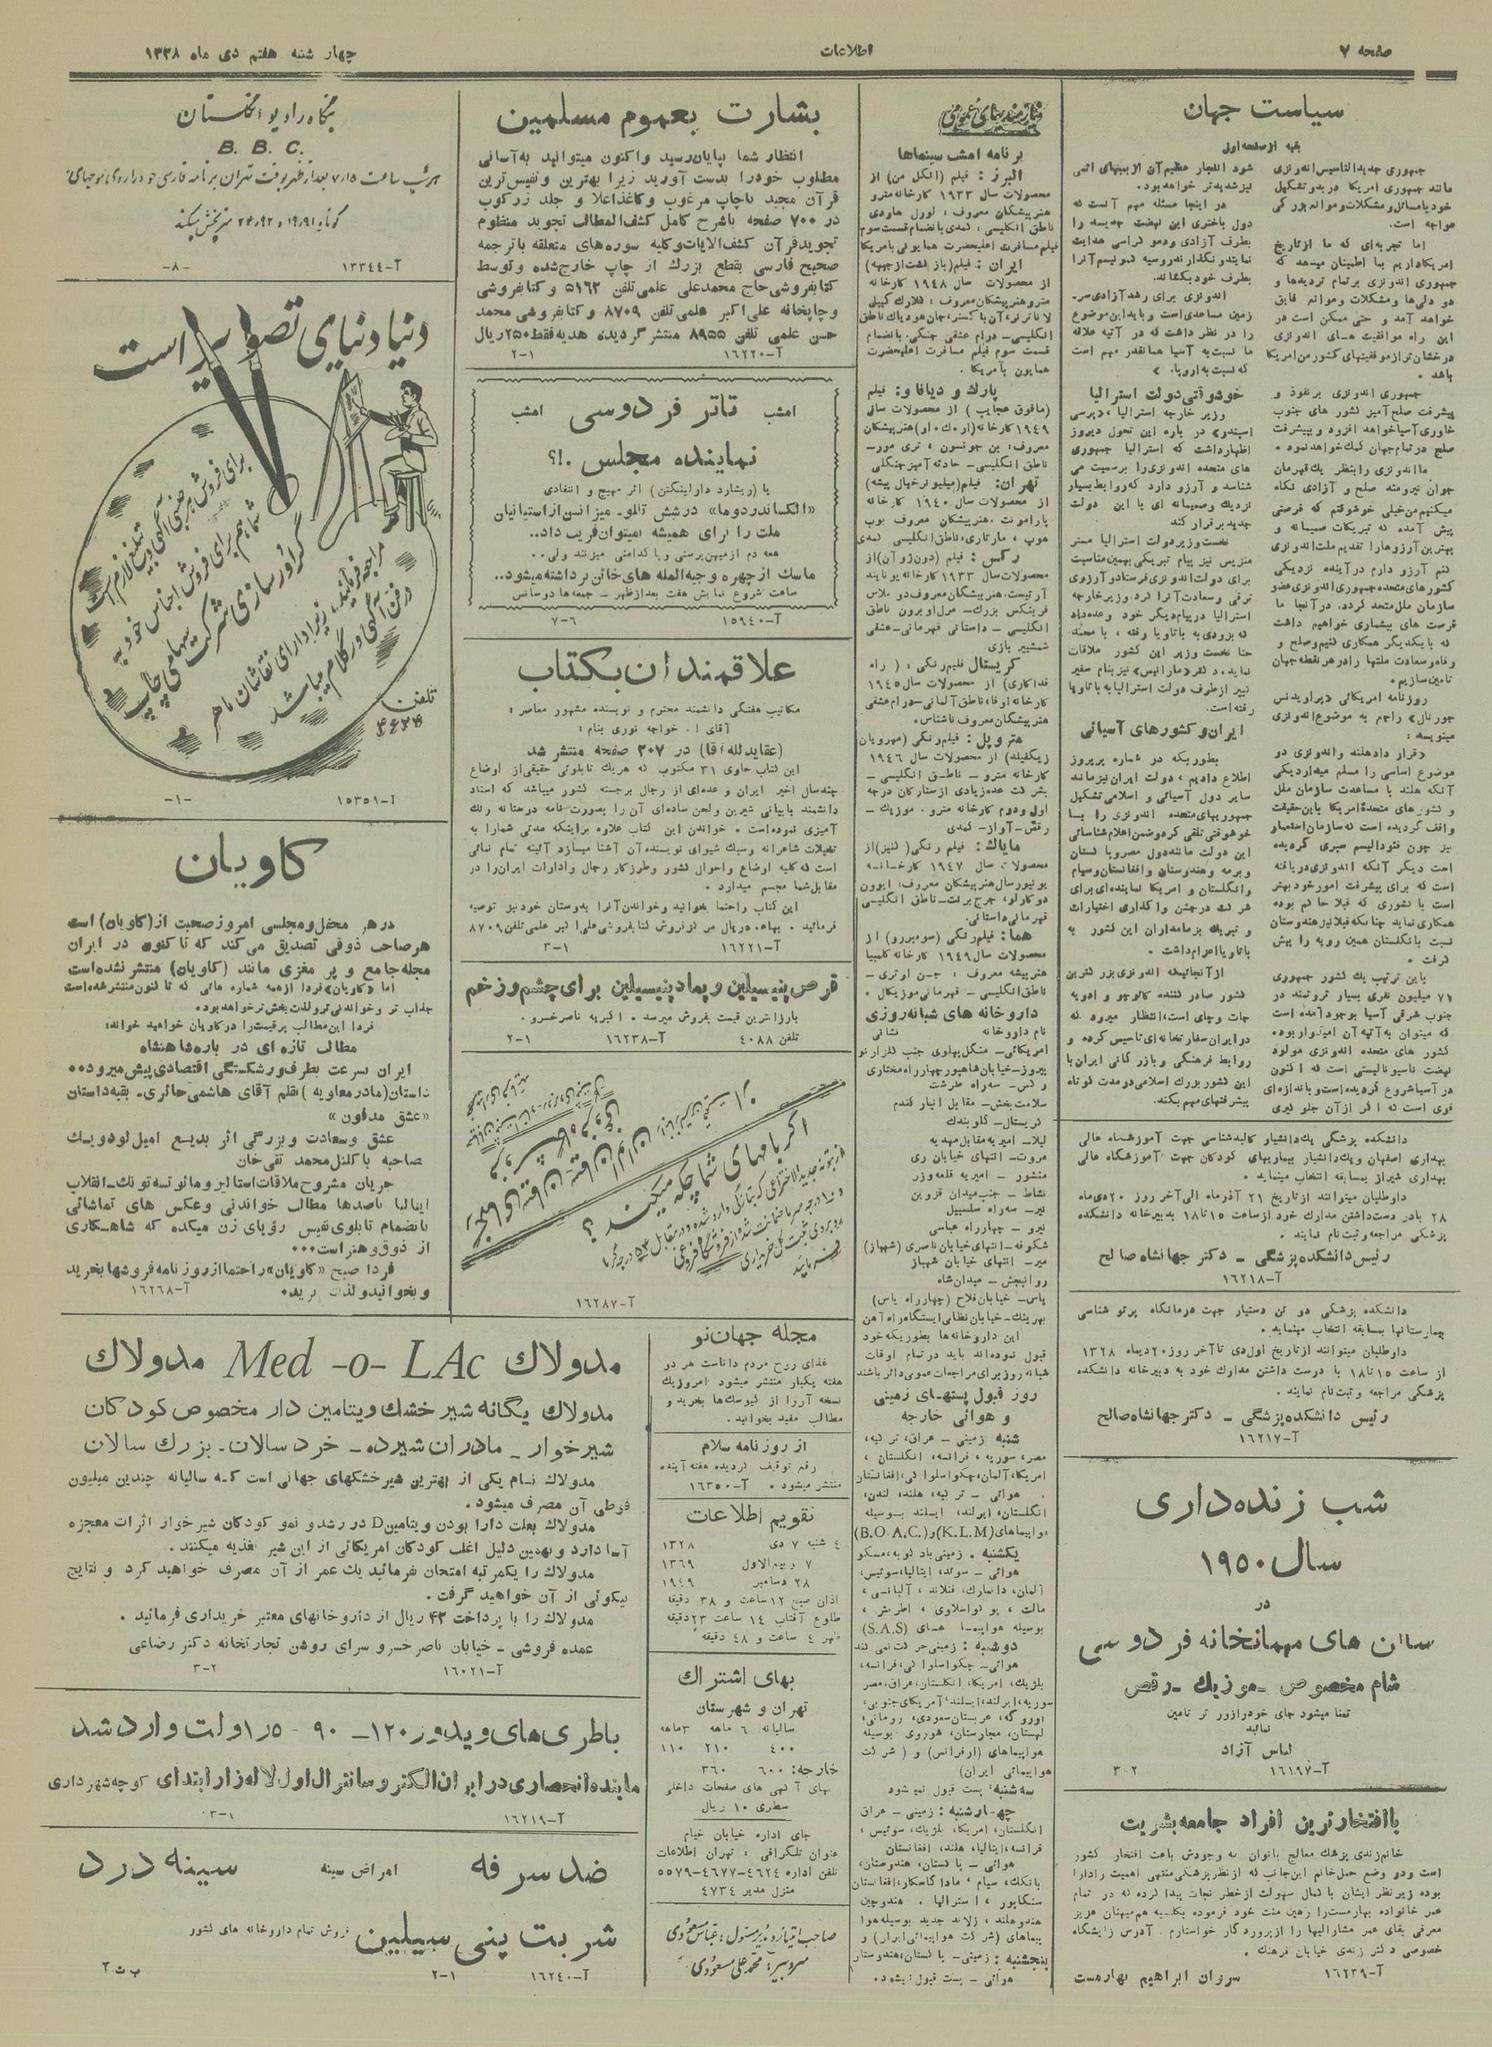 صفحه ۷
اطلاعات
چهارشنبه هفتم دی ماه ۱۳۲۸
سیاست جهان
بقیه از صفحه اول
جمهوری جدیدالتاسیس اندونزی
مانند جمهوری امریکا در بدو تشکیل
خود با مسائل و مشکلات و موانع بزرگی
مواجه است.
اما تجربه‌ای که ما از تاریخ
امریکا داریم بما اطمینان میدهد که
جمهوری اندونزی بر تمام تردیدها و
دو دلی‌ها و مشکلات و موانع فایق
خواهد آمد و حتی ممکن است در
این راه موافقیت های اندونزی
درخشان‌تر از موفقیتهای کشور من امریکا
باشد.
جمهوری اندونزی بر نفوذ و
پیشرفت صلح آمیز کشور های جنوب
خاوری آسیا خواهد افزود و بپیشرفت
صلح در تمام جهان کمک خواهد نمود.
ما اندونزی را بنظر یک قهرمان
جوان نیرومند صلح و آزادی نگاه
میکنیم من خیلی خوشوقتم که فرصتی
پیش آمده که تبریکات صمیمانه و
بهترین آرزوها را تقدیم ملت اندونزی
کنم آرزو دارم در آینده نزدیکی
کشورهای متحده جمهوری اندونزی عضو
سازمان ملل متحد گردد، در آنجا ما
فرصت های بیشماری خواهیم داشت
که با یکدیگر همکاری کنیم و صلح و
رفاه و سعادت ملتها را در هر نقطه جهان
تامین سازیم.
روزنامه امریکائی «پراویدنس
جورنال» راجع به موضوع اندونزی
مینویسد:
«قرارداد هلند و اندونزی دو
موضوع اساسی را مسلم میدارد یکی
آنکه هلند با مساعدت سازمان ملل
و کشور های متحده امریکا باین حقیقت
واقف گردیده است که سازمان استعمار
نیز چون فئودالیسم سپری گردیده
است دیگر آنکه اندونزی دریافته
است که برای پیشرفت امور خود بهتر
است با کشوری که قبلا حاکم بوده
همکاری نماید چنانکه قبلا نیز هندوستان
نسبت بانگلستان همین رویه را پیش
گرفت.
باین ترتیب یک کشور جمهوری
۷۱ میلیون نفری بسیار ثروتمند در
جنوب شرقی آسیا بوجود آمده است
که میتوان به آتیه آن امیدوار بود.
کشور های متحده اندونزی مولود
نهضت ناسیونالیستی است که اکنون
در آسیا شروع گردیده است و باندازه‌ای
قوی است که اگر از آن جلوگیری
شود انفجار عظیم آن از بمبهای اتمی
نیز شدیدتر خواهد بود.
در اینجا مسئله مهم آنست که
دول باختری این نهضت جدید را
بطرف آزادی و دموکراسی هدایت
نمایند و نگذارند روسیه کمونیسم آنرا
بطرف خود بکشاند.
اندونزی برای رشد آزادی سر-
زمین مساعدی است و باید این موضوع
را در نظر داشت که در آتیه علاقه
ما نسبت به آسیا همانقدر مهم است
که نسبت به اروپا.»
خوشوقتی دولت استرالیا
وزیر خارجه استرالیا «پرسی
اسپندر» در باره این تحول دیروز
اظهار داشت که استرالیا جمهوری
های متحده اندونزی را برسمیت می
شناسد و آرزو دارد که روابط بسیار
نزدیک و صمیمانه ای با این دولت
جدید برقرار کند
نخست وزیر دولت استرالیا مستر
منزیس نیز پیام تبریکی بهمین مناسبت
برای دولت اندونزی فرستاد و آرزوی
ترقی و سعادت آنرا کرد. وزیر خارجه
استرالیا در پیام دیگر خود وعده داد
که بزودی به باتاویا رفته، با محمد
حتا نخست وزیر این کشور ملاقات
نماید.
کبیر از طرف دولت استرالیا به باتاویا
رفته است.
ایران و کشورهای آسیائی
بطوریکه در شماره پریروز
اطلاع دادیم، دولت ایران نیز مانند
سایر دول آسیائی و اسلامی تشکیل
جمهوریهای متحده اندونزی را با
خوشوقتی تلقی کرد و ضمن اعلام شناسائی
این دولت مانند دول مصر و پاکستان
و برمه و هندوستان و افغانستان و سیام
و انگلستان و امریکا نماینده‌ای برای
شرکت در جشن واگذاری اختیارات
و تبریک بزمامداران این کشور به
باتاویا اعزام داشت.
از آنجائیکه اندونزی بزرگترین
کشور صادر کننده کائوچو و ادویه
جات و چای است، انتظار میرود که
در ایران سفارتخانه‌ای تاسیس کرده و
روابط فرهنگی و بازرگانی ایران با
این کشور بزرگ اسلامی در مدت کوتاه
پیشرفتهای مهم بکند.
دانشکده پزشکی یک دانشیار کالبدشناسی جهت آموزشگاه عالی
بهداری اصفهان و یک دانشیار بیماریهای کودکان جهت آموزشگاه عالی
بهداری شیراز بمسابقه انتخاب مینماید.
داوطلبان میتوانند از تاریخ ۲۱ آذرماه الی آخر روز ۲۰ دی‌ماه
۲۸ با در دست داشتن مدارک خود از ساعت ۱۵ تا ۱۸ بدبیرخانه دانشکده
پزشکی مراجعه و ثبت نام نمایند.
رئیس دانشکده پزشگی ـ دکتر جهانشاه صالح
آ-۱۶۲۱۸
دانشکده پزشکی دو تن دستیار جهت درمانگاه پرتو شناسی
بیمارستانها بمسابقه انتخاب مینماید.
داوطلبان میتوانند از تاریخ اول دی تا آخر روز ۲۰ دیماه ۱۳۲۸
از ساعت ۱۵ تا ۱۸ با در دست داشتن مدارک خود به دبیرخانه دانشکده
پزشکی مراجعه و ثبت نام نمایند.
رئیس دانشکده پزشگی ـ دکتر جهانشاه صالح
آ-۱۶۲۱۷
شب زنده داری
سال ۱۹۵۰
در
سالن های مهمانخانه فردوسی
شام مخصوص ـ موزیک ـ رقص
تمنا میشود جای خود را زودتر تامین
نمائید
لباس آزاد
آ-۱۶۱۹۷
۳-۲
با افتخارترین افراد جامعه بشریت
خانم زندی پزشک معالج بانوان که وجودش باعث افتخار کشور
است و دو وضع حمل خانم این جانب که از نظر پزشکی منتهی اهمیت را دارا
بوده زیر نظر ایشان با کمال سهولت از خطر نجات پیدا کرده نه تنها
عمر خانواده بهارمست را رهین منت خود فرموده بلکه به هم میهنان عزیز
معرفی بقای عمر مشارالیها را از پروردگار خواستارم. آدرس زایشگاه
خصوصی دکتر زندی خیابان فرهنگ.
آ-۱۶۲۳۹
سروان ابراهیم بهارمست
نیازمندیهای عمومی
برنامه امشب سینماها
البرز: فیلم (انکل من) از
محصولات سال ۱۹۳۳ کارخانه مترو
ناطق انگلیسی، کمدی بانضمام قسمت سوم
فیلم مسافرت اعلیحضرت همایونی بامریکا
ایران: فیلم (بازگشت از جبهه)
از محصولات سال ۱۹۴۸ کارخانه
مترو هنرپیشگان معروف: کلارک گیبل
لاناترنر، آن باکستر، جان هودیاک ناطق
انگلیسی ـ درام عشقی جنگی. بانضمام
قسمت سوم فیلم مسافرت اعلیحضرت
همایون بامریکا.
پارک و دیانا و: فیلم
(مافوق عجایب) از محصولات سال
۱۹۴۹ کارخانه (ار.ک.او) هنرپیشگان
معروف: بن جونسون، تری مور-
ناطق انگلیسی ـ حادثه آمیز جنگلی
تهران: فیلم (میلیونر خیال پیشه)
از محصولات سال ۱۹۴۰ کارخانه
پارامونت. هنرپیشگان معروف بوب
هوپ، مارتاری، ناطق انگلیسی کمدی
رکس: فیلم (دون ژوان) از
محصولات سال ۱۹۳۳ کارخانه یونایتد
آرتیست، هنرپیشگان معروف دوگلاس
فربنکس بزرگ ـ مرل اوبرون ناطق
انگلیسی ـ داستانی قهرمانی ـ عشقی
شمشیر بازی
کریستال فیلم رنگی: (راه
فداکاری) از محصولات سال ۱۹۴۵
کارخانه اوفا، ناطق آلمانی ـ درام عشقی
هنرپیشگان معروف ناشناس.
متروپل: فیلم رنگی (مهرویان
زیگفیلد) از محصولات سال ۱۹۴۶
کارخانه مترو ـ ناطق انگلیسی ـ
بشرکت عده زیادی از ستارگان درجه
اول و دوم کارخانه مترو. موزیک ـ
رقص ـ آواز ـ کمدی
مایاک: فیلم رنگی (کنیز) از
محصولات سال ۱۹۴۷ کارخانه
یونیورسال هنرپیشگان معروف: ایوون
دوکارلو، جرج برنت ـ ناطق انگلیسی
قهرمانی داستانی.
هما: فیلم رنگی (سومبررو) از
محصولات سال ۱۹۴۹ کارخانه کلمبیا
هنرپیشه معروف: جین اوتری ـ
ناطق انگلیسی ـ قهرمانی موزیکال.
داروخانه های شبانه‌روزی
نام داروخانه نشانی
امریکائی ـ منگل پهلوی جنب کلزار نو
پیروز ـ خیابان شاهپور چهارراه مختاری
رکس ـ سه راه طرشت
سلامت بخش ـ مقابل انبار گندم
کریستال ـ گلوبندک
لیلا ـ امیریه مقابل مهدیه
مروت ـ انتهای خیابان ری
منشور ـ امیریه قلعه وزیر
نشاط ـ جنب میدان قزوین
نیر ـ سه راه سلسبیل
نیرو ـ چهارراه عباسی
شکوفه ـ انتهای خیابان ناصری (شهباز)
میر ـ انتهای خیابان شهباز
روانبخش ـ میدان شاه
یاس ـ خیابان فلاح (چهارراه یاس)
بهرینک ـ خیابان نظامی ایستگاه راه آهن
این داروخانه ها بطوریکه خود
قبول نموده‌اند باید در تمام اوقات
شبانه روز برای مراجعات عمومی دائر باشند
روز قبول پستهای زمینی
و هوائی خارجه
شنبه زمینی ـ عراق، ترکیه،
مصر، سوریه، فرانسه، انگلستان،
امریکا، آلمان، چکواسلواکی، افغانستان
هوائی ـ ترکیه، هلند، لندن،
انگلستان، ایرلند، ایسلند بوسیله
هواپیماهای (K.L.M) و (B.O.A.C.)
یکشنبه. زمینی بادکوبه، مسکو
هوائی ـ سوئد، ایتالیا، سوئیس،
آلمان، دانمارک، فنلاند، آلبانی،
مالت، یوگواسلاوی، اطریش،
بوسیله هواپیماهای (S.A.S)
دوشنبه: زمینی حرکت نمی کند
هوائی ـ چکواسلواکی، فرانسه،
بلژیک، امریکا، انگلستان، عراق، مصر
سوریه، ایرلند، ایسلند، آمریکای جنوبی،
اوروگه، عربستان سعودی، رومانی،
لهستان، مجارستان، شوروی بوسیله
هواپیماهای (ارفرانس) و (شرکت
هواپیمائی ایران)
سه شنبه: پست قبول نمیشود
چهارشنبه: زمینی ـ عراق
انگلستان، امریکا، بلژیک، سوئیس،
فرانسه، ایتالیا، هلند، افغانستان
هوائی ـ پاکستان، هندوستان،
بانکک، سیام، ماداگاسکار، افغانستان
سنگاپور، استرالیا. هندوچین
هندوهلند، زلاند جدید بوسیله هوا
پیماهای (شرکت هواپیمائی ایران) و
پنجشنبه: زمینی ـ پاکستان، هندوستان
هوائی ـ پست قبول نمیشود.
بشارت بعموم مسلمین
انتظار شما بپایان رسید و اکنون میتوانید به آسانی
مطلوب خود را بدست آورید زیرا بهترین و نفیس ترین
قرآن مجید با چاپ مرغوب و کاغذ اعلا و جلد زرکوب
در ۷۰۰ صفحه با شرح کامل کشف المطالب تجوید منظوم
تجوید قرآن کشف الایات و کلیه سوره های متعلقه با ترجمه
صحیح فارسی بقطع بزرگ از چاپ خارج شده و توسط
کتابفروشی حاج محمدعلی علمی تلفن ۵۱۶۲ و کتابفروشی
و چاپخانه علی اکبر علمی تلفن ۸۷۰۹ و کتابفروشی محمد
حسن علمی تلفن ۸۹۵۵ منتشر گردیده هدیه فقط ۲۵۰ ریال
آ-۱۶۲۲۰
۲-۱
امشب تاتر فردوسی امشب
نماینده مجلس .!؟
یا (ریشارد دارلینگتن) اثر مهیج و انتقادی
«الکساندر دوما» در شش تابلو ـ میزانسن از استپانیان
ملت را برای همیشه نمیتوان فریب داد..
همه دم از میهن پرستی و پاکدامنی میزنند ولی..
ماسک از چهره و جبه المله های خائن برداشته میشود..
ساعت شروع نمایش هفت بعد از ظهر ـ جمعه ها دو سانس
آ-۱۵۹۴۰
۷-۶
علاقمندان بکتاب
مکاتیب هفتگی دانشمند محترم و نویسنده مشهور معاصر:
آقای ا. خواجه نوری بنام:
(عقایدلله آقا) در ۲۰۷ صفحه منتشر شد
این کتاب حاوی ۳۱ مکتوب که هر یک تابلوئی حقیقی از اوضاع
چند سال اخیر ایران و عده‌ای از رجال برجسته کشور میباشد که استاد
دانشمند با بیانی شیرین و لحن ساده‌ای آن را بصورت نامه دوستانه رنگ
آمیزی نموده است. خواندن این کتاب علاوه بر اینکه مدتی شما را به
تخیلات شاعرانه و سبک شیوای نویسنده آن آشنا میسازد آئینه تمام نمائی
است که کلیه اوضاع و احوال کشور و طرز کار رجال و ادارات ایران را در
مقابل شما مجسم میدارد.
این کتاب را حتما بخوانید و خواندن آنرا به دوستان خود نیز توصیه
فرمائید. بهاء ۵۰ ریال مرکز فروش کتابفروشی علی اکبر علمی تلفن ۸۷۰۹
آ-۱۶۲۲۱
۳-۱
قرص پنیسیلین و پماد پنیسیلین برای چشم و زخم
با نازلترین قیمت بفروش میرسد. اکبریه ناصرخسرو.
تلفن ۴۰۸۸
آ-۱۶۲۳۸
۲-۱
اگر بامهای شما چکه میکند؟
آ-۱۶۲۸۷
مجله جهان‌نو
غذای روح مردم داناست هر دو
هفته یکبار منتشر میشود امروز یک
نسخه آنرا از کیوسک‌ها بخرید و
مطالب مفید بخوانید.
از روزنامه سلام
رفع توقیف گردیده هفته آینده
منتشر میشود. آ-۱۶۳۵۰
تقویم اطلاعات
۴ شنبه ۷ دی ۱۳۲۸
۷ ربیع الاول ۱۳۶۹
۲۸ دسامبر ۱۹۴۹
اذان صبح ۱۲ ساعت و ۳۸ دقیقه
طلوع آفتاب ۱۴ ساعت ۲۳ دقیقه
ظهر ۴ ساعت و ۴۸ دقیقه
بهای اشتراک
تهران و شهرستان
سالیانه ۶ ماهه ۳ماهه
۴۰۰ ۲۱۰ ۱۱۰
خارجه: ۶۰۰ ۳۶۰
بهای آگهی های صفحات داخلی
سطری ۱۰ ریال
جای اداره خیابان خیام
عنوان تلگرافی: تهران اطلاعات
تلفن اداره ۴۶۲۴-۴۶۷۷-۵۵۷۹
منزل مدیر ۴۷۳۴
صاحب امتیاز و مدیر مسئول: عباس مسعودی
سردبیر: محمدعلی مسعودی
بنگاه رادیو انگلستان
B. B. C.
هر شب ساعت ۷/۱۵ بعد از ظهر بوقت تهران برنامه فارسی خود را روی موجهای
کوتاه ۱۹/۹۱ و ۲۴/۹۲ متر پخش میکند
آ-۱۳۳۴۴
-۸-
دنیا دنیای تصویر است
برای فروش هر جنسی آگهی و تبلیغ لازم است
شما هم برای فروش اجناس خود به
گراور سازی شرکت سهامی چاپ
مراجعه فرمائید، زیرا دارای نقاشان ماهر
در فن آگهی و رکلام میباشد
تلفن
۴۶۲۴
آ-۱۵۳۵۱
-۱-
کاویان
در هر محفل و مجلسی امروز صحبت از (کاویان) است
هر صاحب ذوقی تصدیق می کند که تا کنون در ایران
مجله جامع و پر مغزی مانند (کاویان) منتشر نشده است
اما «کاویان» فردا از همه شماره هائی که تا کنون منتشر شده است
جذاب تر و خواندنی تر و لذت بخش تر خواهد بود.
فردا این مطالب پر قیمت را در کاویان خواهید خواند:
مطالب تازه ای در باره شاهنشاه
ایران بسرعت بطرف ورشکستگی اقتصادی پیش میرود...
داستان (مادر معاویه) بقلم آقای هاشمی حائری. بقیه داستان
«عشق مدفون»
عشق و سعادت و بزرگی اثر بدیع امیل لودویک
مصاحبه با کلنل محمد تقی خان
جریان مشروح ملاقات استالین و مائوتسه تونک ـ انقلاب
ایتالیا با صدها مطالب خواندنی و عکس های تماشائی
بانضمام تابلوی نفیس رؤیای زن میکده که شاهکاری
از ذوق و هنر است...
فردا صبح «کاویان» را حتما از روزنامه فروشها بخرید
و بخوانید و لذت ببرید.
آ-۱۶۲۶۸
مدولاک Med-o-LAc مدولاک
مدولاک یگانه شیر خشک ویتامین دار مخصوص کودکان
شیرخوار ـ مادران شیرده ـ خرد سالان ـ بزرگ سالان
مدولاک نام یکی از بهترین شیرخشکهای جهانی است که سالیانه چندین میلیون
قوطی آن مصرف میشود.
مدولاک بعلت دارا بودن ویتامین D در رشد و نمو کودکان شیر خوار اثرات معجزه
آسا دارد و بهمین دلیل اغلب کودکان امریکائی از این شیر تغذیه میکنند.
مدولاک را یکمرتبه امتحان فرمائید یک عمر از آن مصرف خواهید کرد و نتایج
نیکوئی از آن خواهید گرفت.
مدولاک را با پرداخت ۴۳ ریال از داروخانهای معتبر خریداری فرمائید.
عمده فروشی ـ خیابان ناصر خسرو سرای روشن تجارتخانه دکتر رضاعی
آ-۱۶۰۲۱
۳-۲
باطری‌های ویدور ۱۲۰ ـ ۹۰ - ۱/۵ ولت وارد شد
نماینده انحصاری در ایران الکترو سانترال اول لاله زار ابتدای کوچه شهرداری
آ-۱۶۲۱۹
۳-۱
ضد سرفه امراض سینه سینه درد
شربت پنی سیلین فروش تمام داروخانه های کشور
آ-۱۶۲۴۰
۲-۱
ب ث ۲